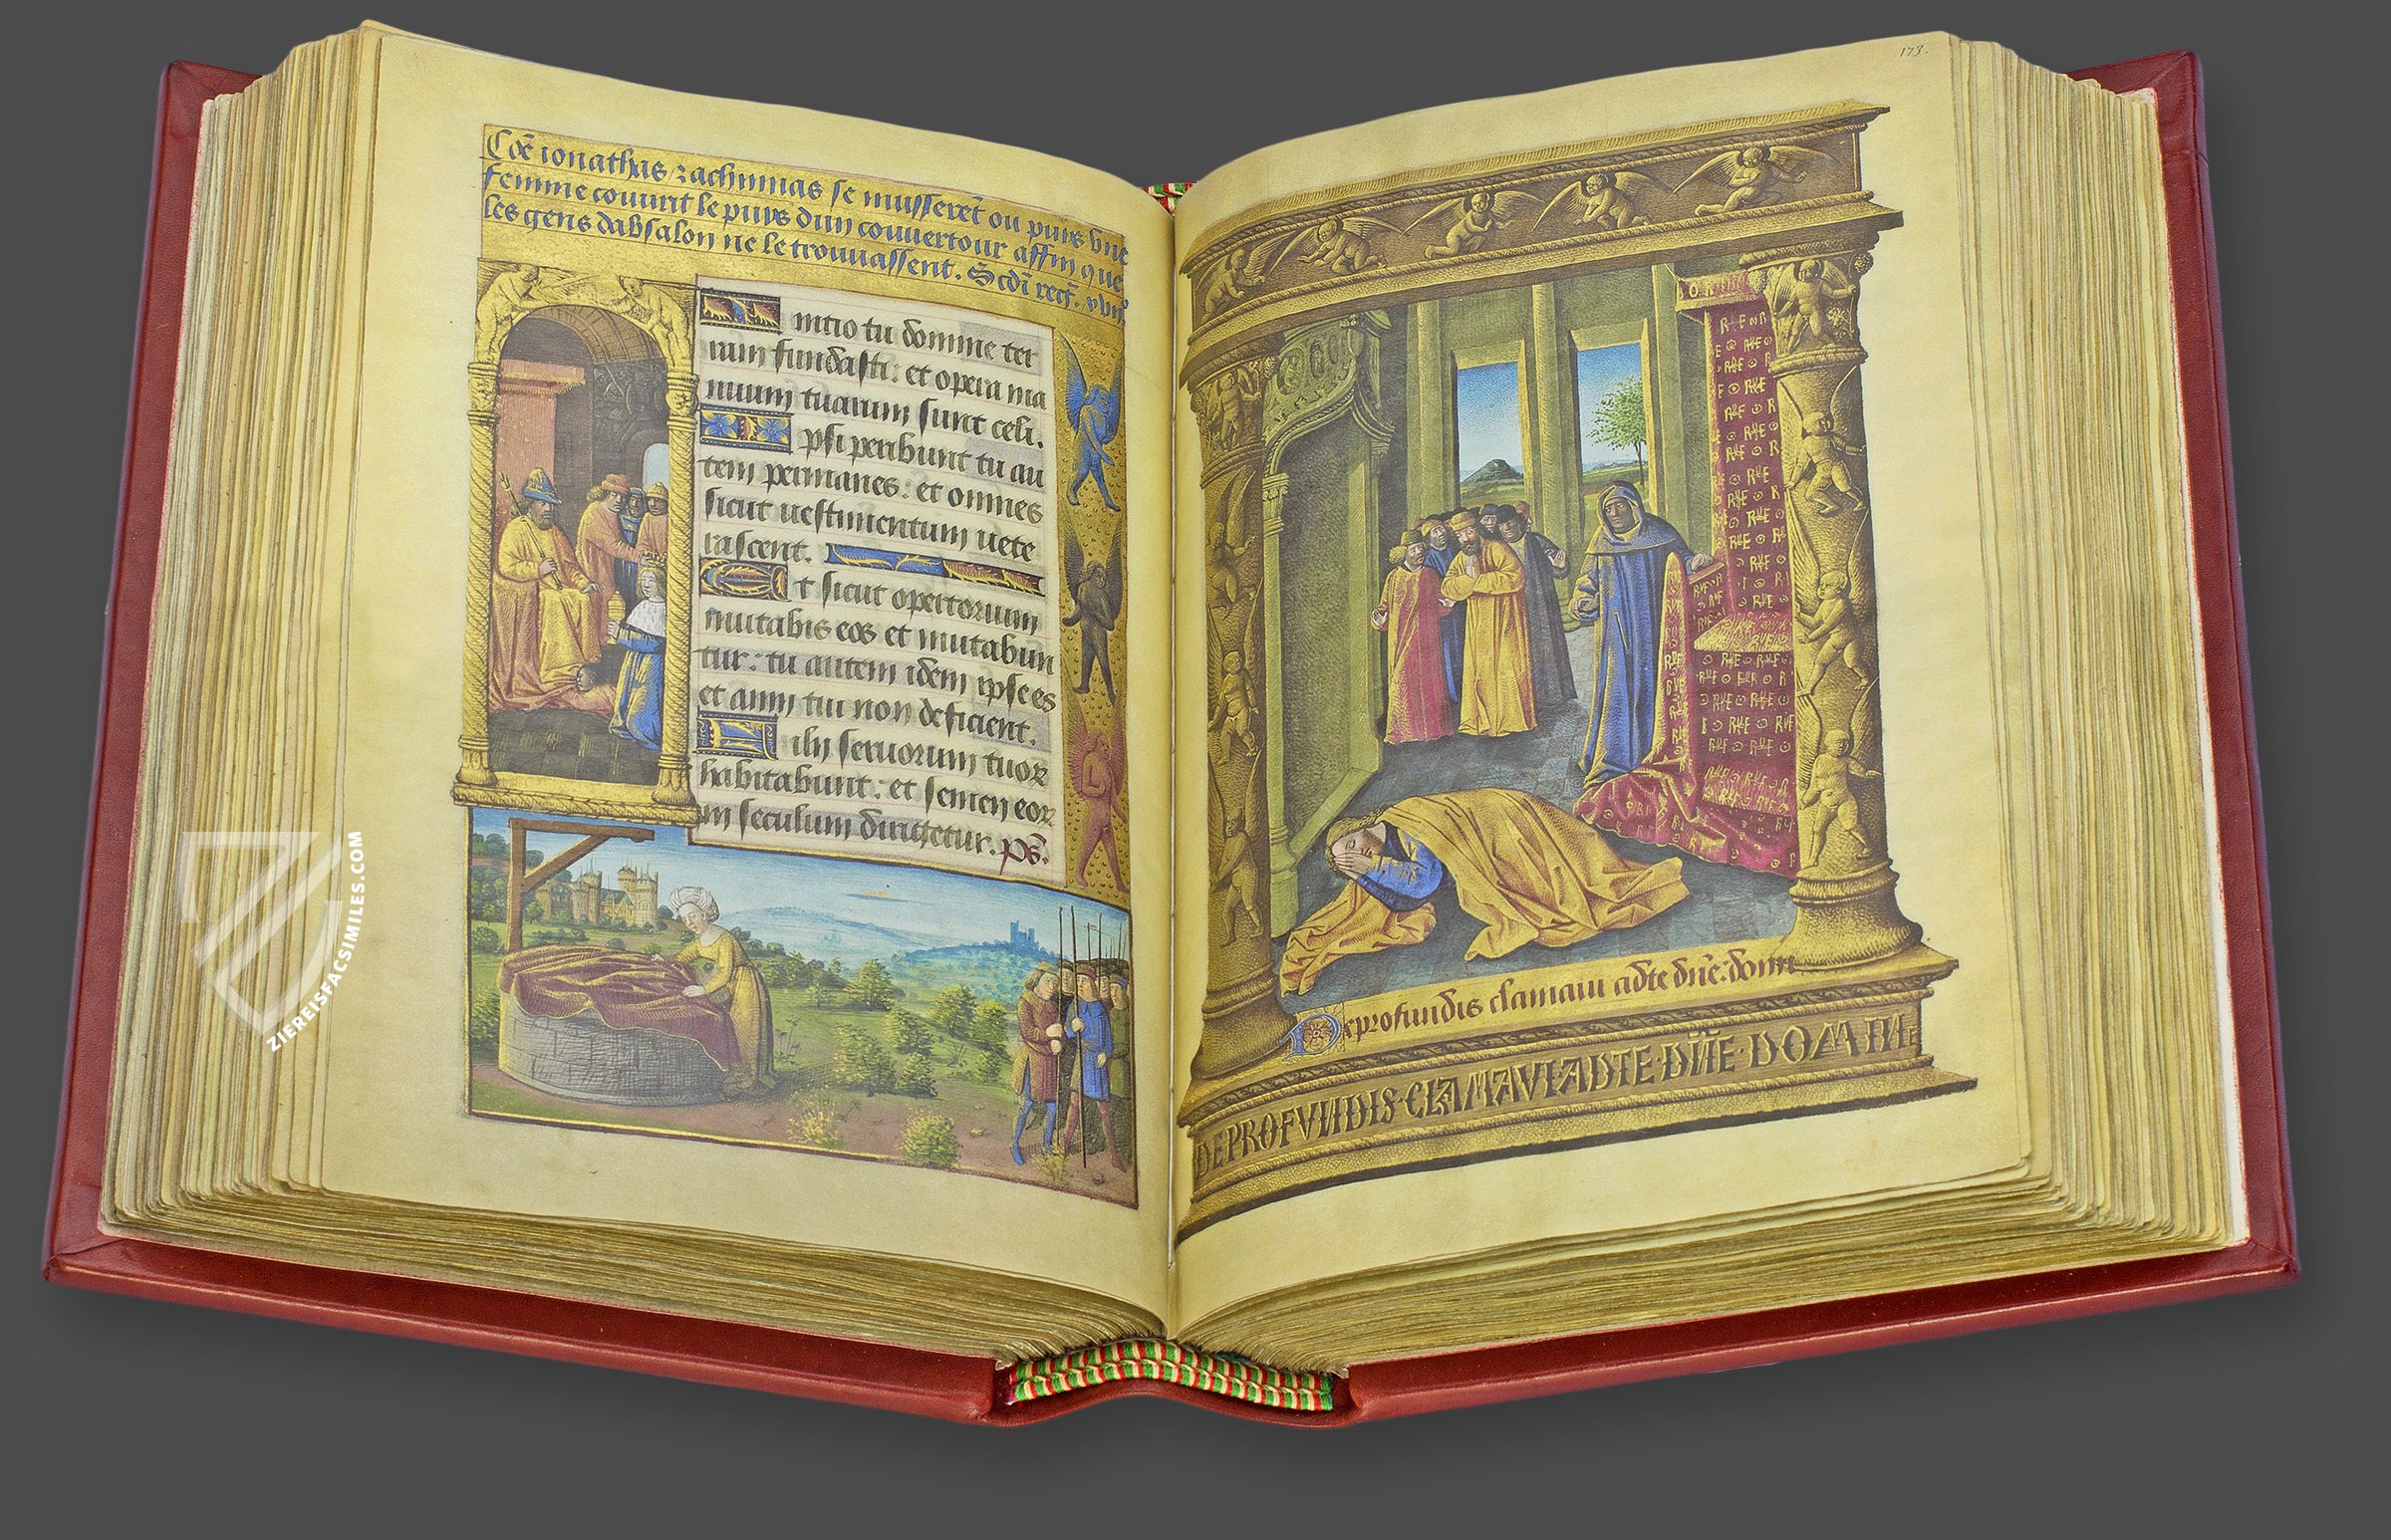 Coē ionathas ⁊ achimas se musserēt ou puys vne
femme couurit le puys dun couuertour affin que
les gens dabsalon ne le trouuassent. Scdī reḡ. xvii
nitio tu domine ter
ram fundasti: et opera ma
nuum tuarum sunt celi.
psi peribunt tu au
tem permanes: et omnes
sicut uestimentum uete
rascent.
t sicut opertorium
mutabis eos et mutabun
tur: tu autem idem ipse es
et anni tui non deficient.
ilij seruorum tuoꝝ
habitabunt: et semen eoꝝ
in seculum dirigetur. ps.
173.
De profundis clamaui adte dñe: domi
DE PROFVNDIS·CLAMAVI ADTE·DÑE·DOMINE
ZIEREISFACSIMILES.COM